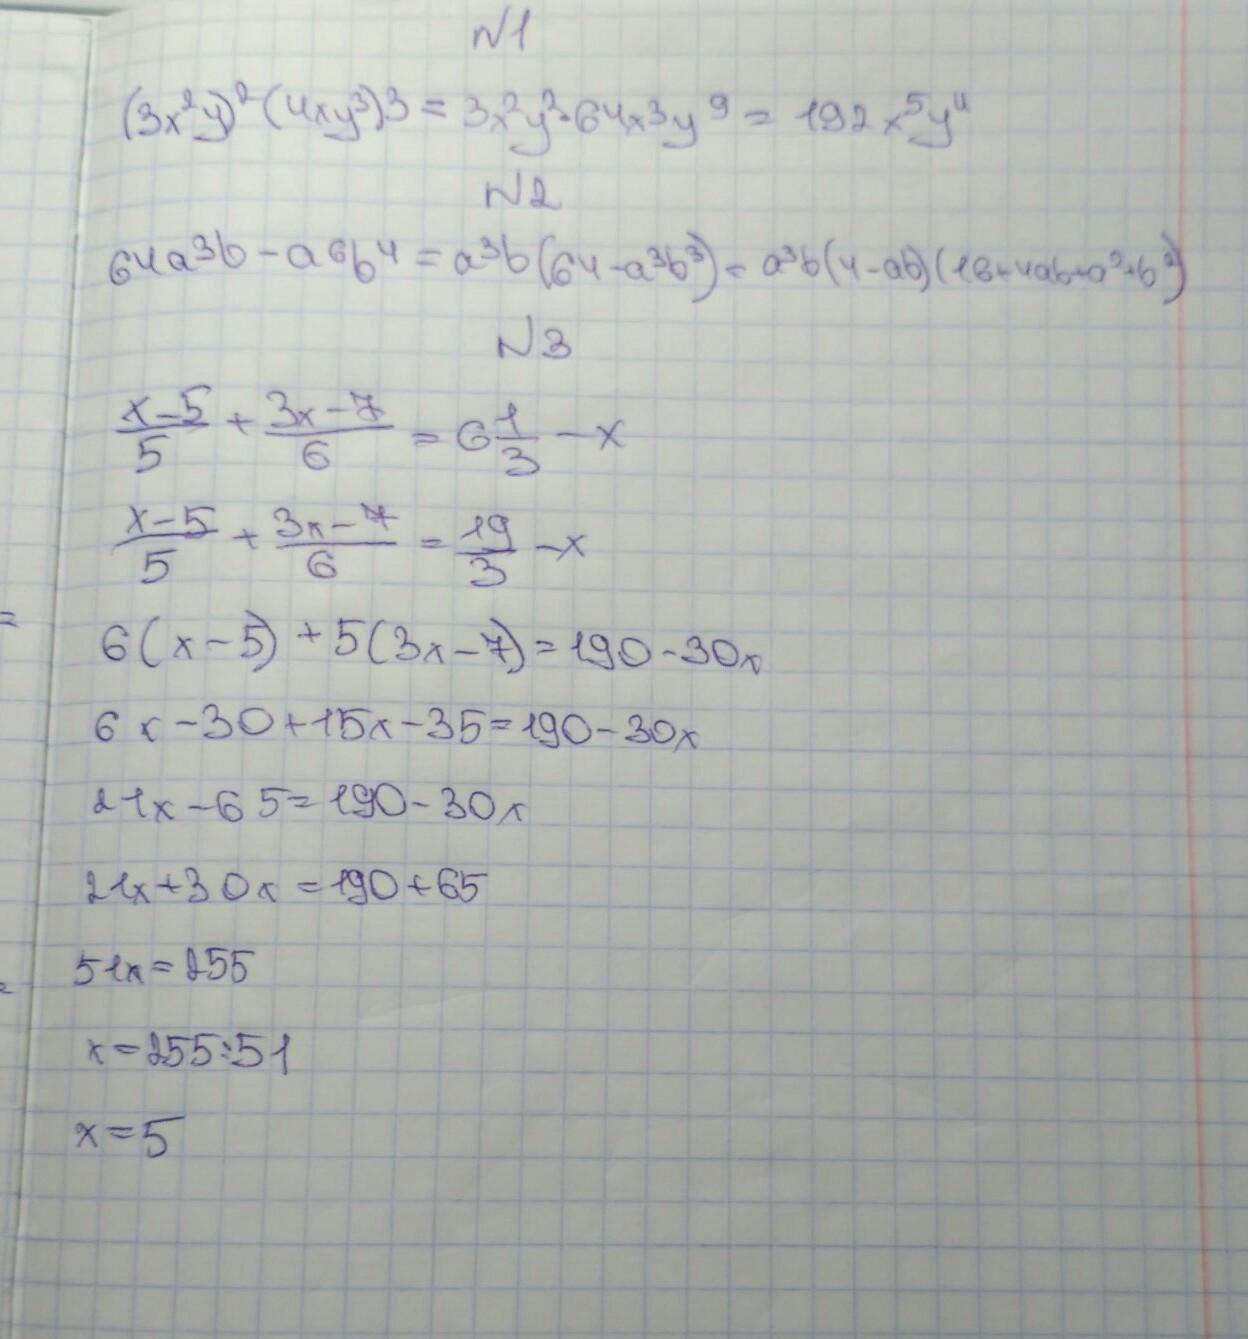 N1
(3x²y)²(4xy³)3 = 3x²y²·64x³y⁹ = 192x⁵y⁴
N2
64a³b - a⁶b⁴ = a³b(64-a³b³) = a³b(4-ab)(16+4ab+a²+b²)
N3
(x-5)/5 + (3x-7)/6 = 6 1/3 - x
(x-5)/5 + (3x-7)/6 = 19/3 - x
6(x-5) + 5(3x-7) = 190-30x
6x-30+15x-35=190-30x
21x-65=190-30x
21x+30x=190+65
51x=255
x=255:51
x=5